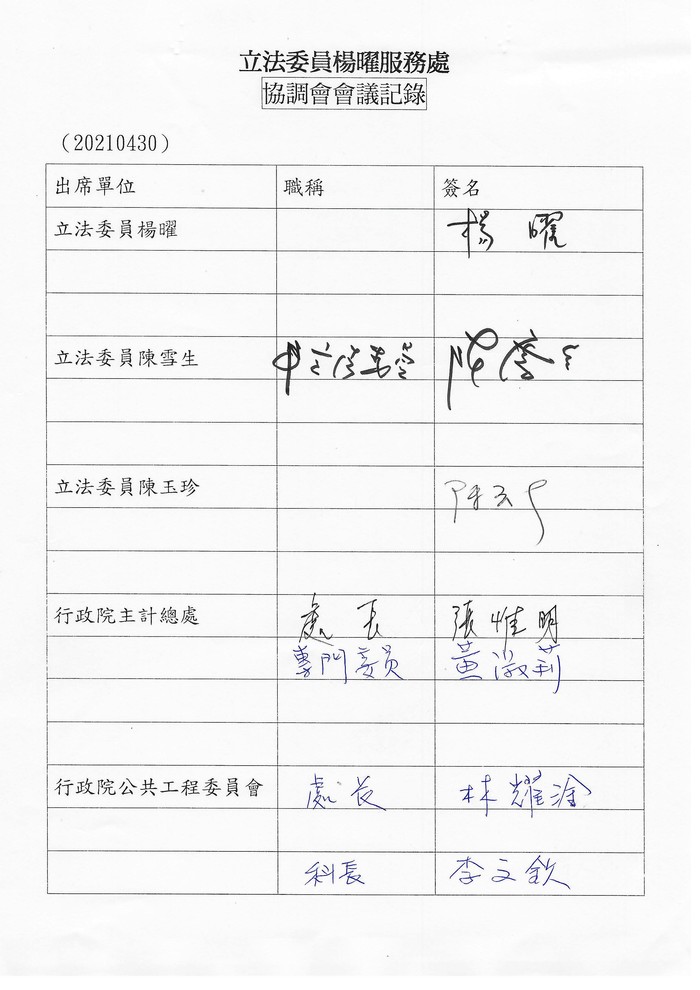 立法委員楊曜服務處
協調會會議記錄
（20210430）
出席單位 職稱 簽名
立法委員楊曜 楊曜
立法委員陳雪生 陳雪生
立法委員陳玉珍 陳玉珍
行政院主計總處 處長 張惟明
專門委員 黃淑莉
行政院公共工程委員會 處長 林耀淦
科長 李文欽